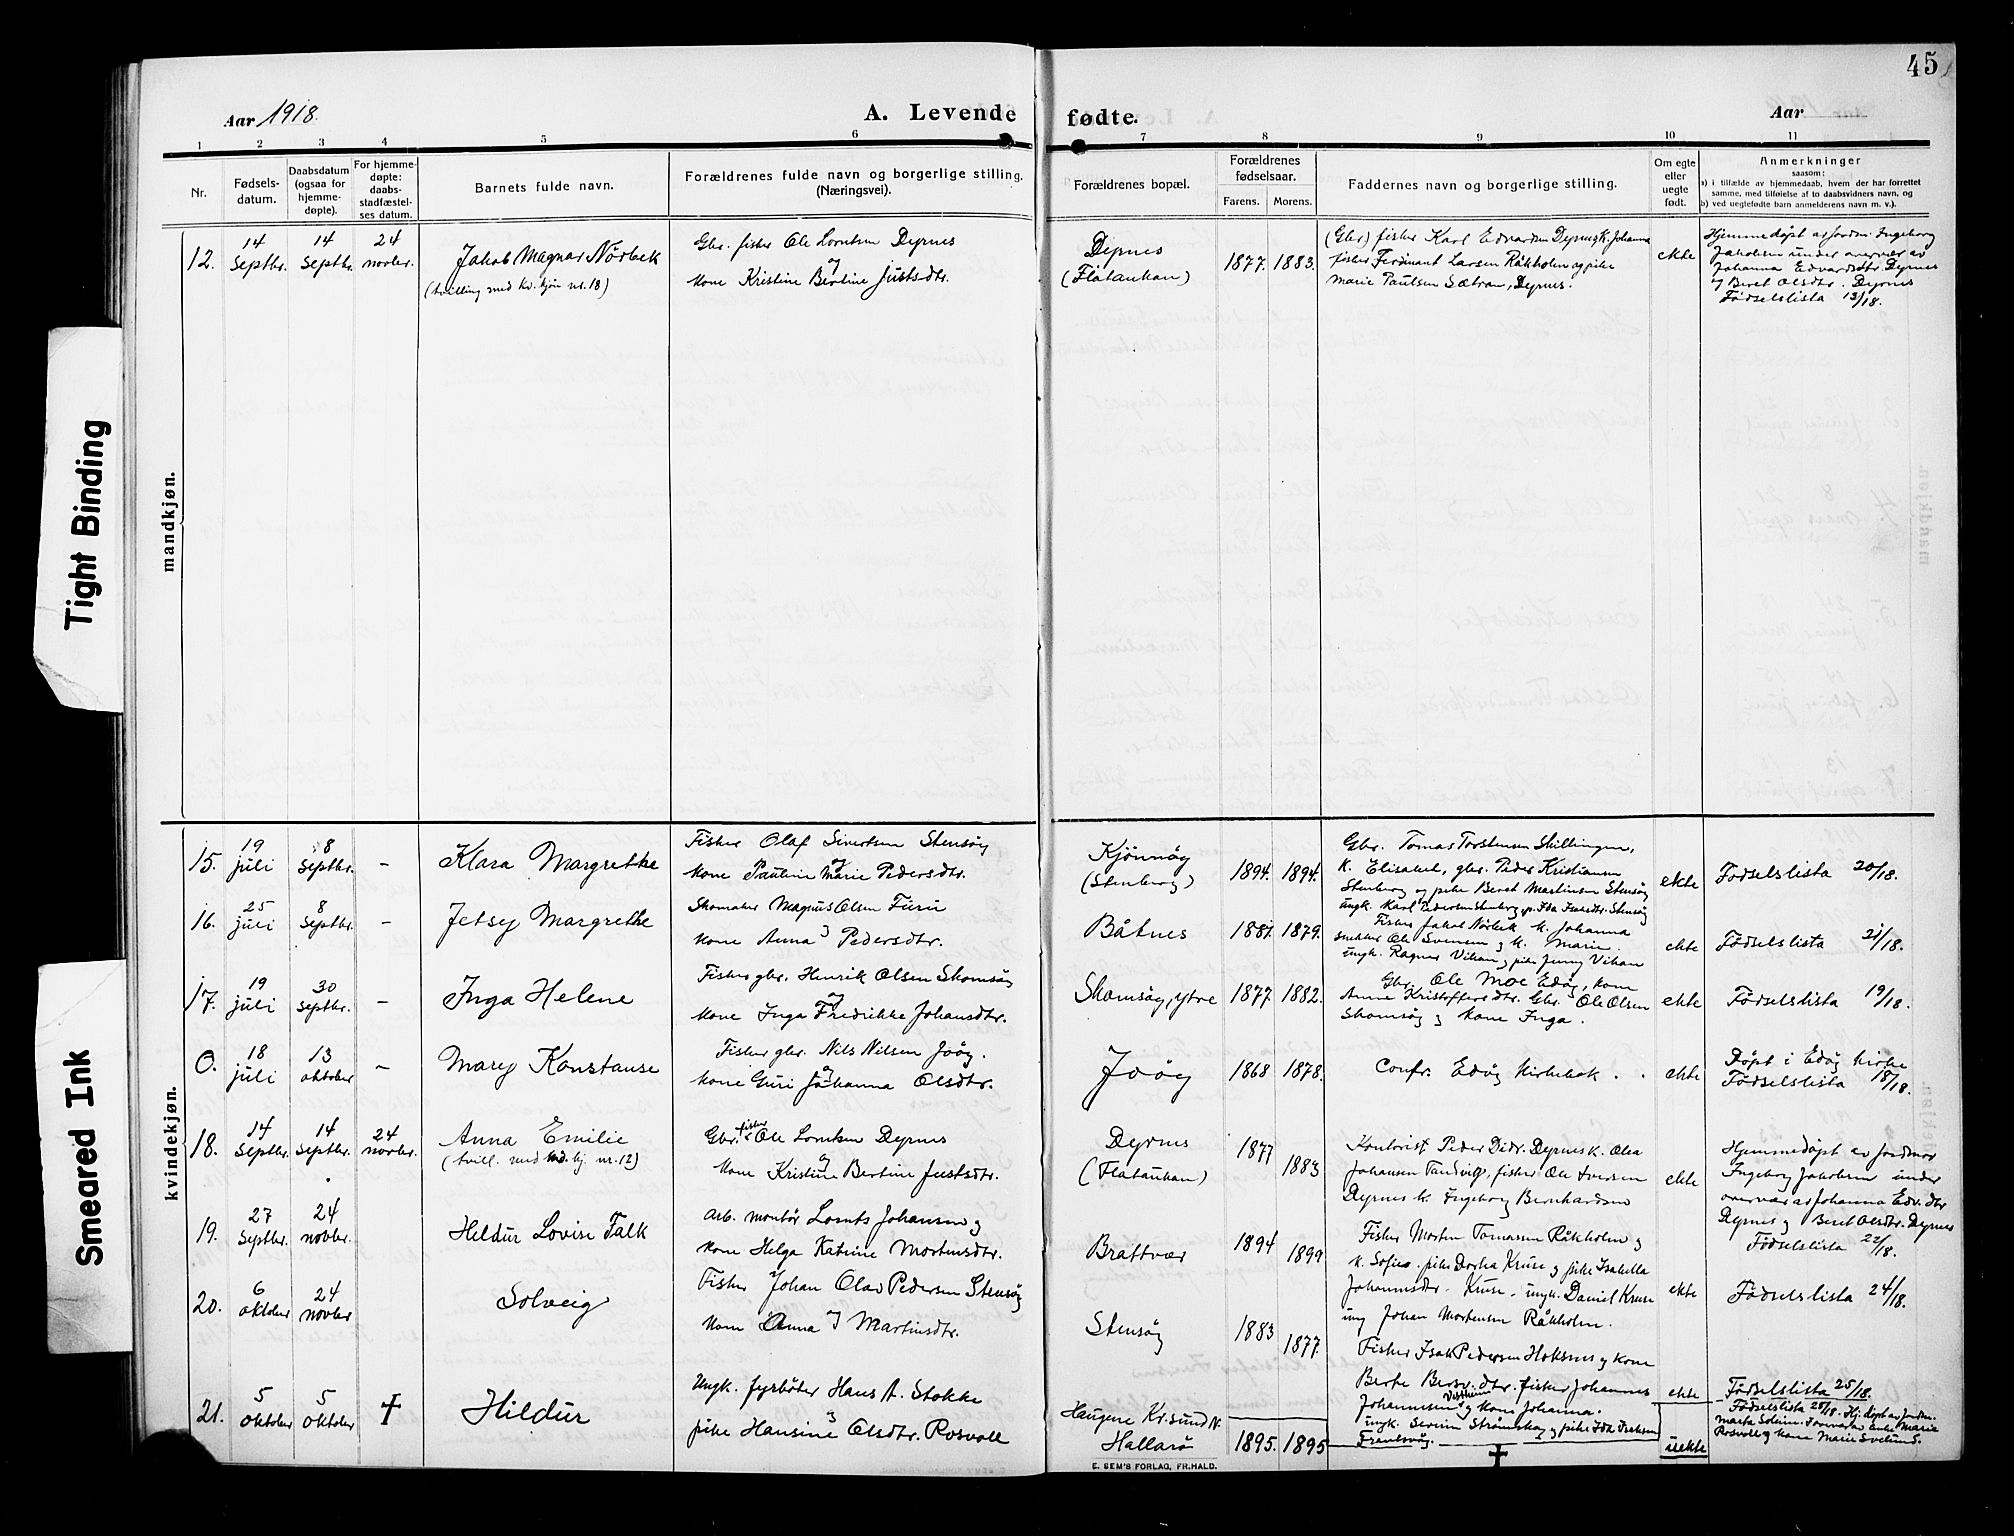 45
Aar 1918.
A. Levende
fødte.
Aar
1 2 3 4 5 6 7 8 9 10 11
Nr.
Fødsels-
datum.
Daabsdatum
(ogsaa for
hjemme-
døpte).
For hjemme-
døpte:
daabs-
stadfæstel-
ses datum.
Barnets fulde navn.
Forældrenes fulde navn og borgerlige stilling.
(Næringsvei).
Forældrenes bopæl.
Forældrenes
fødselsaar.
Farens. Morens.
Faddernes navn og borgerlige stilling.
Om egte
eller
uegte
født.
Anmerkninger
saasom:
a) i tilfælde av hjemmedaab, hvem der har forrettet
samme, med tilføielse af to daabsvidners navn, og
b) ved uegtefødte barn anmelderens navn m. v.).
mandkjøn.
12.
14
Septbr.
14
Septbr.
24
novbr.
Jakob Magnar Nörbek
(tvilling med kv. kjön nr. 18)
Gbr. fisker Ole Lorntsen Dyrnes
og
kone Kristine Bertine Justsdtr.
Dyrnes
(Flataukan)
1877. 1883.
(Gbr) fisker Karl Edvardsen Dyrnes k. Johanna
fisker Ferdinant Larsen Råkholm og pike
Marie Paulsen Sætran, Dyrnes.
ekte
Hjemmedöpt av jordm. Ingeborg
Jakobsen under overvær av
Johanna Edvardsdtr Dyrnes
og Beret Olsdtr. Dyrnes
Födselslista 13/18.
kvindekjøn.
15.
19
juli
8
Septbr.
-
Klara Margrethe
Fisker Olaf Sivertsen Stensöy
og
kone Pauline Marie Pedersdtr.
Kjönnöy
(Stenberg)
1894. 1894.
Gbr. Tomas Torstensen Skillingen,
k. Elisabet, gbr. Peder Kristiansen
Stenberg og pike Beret Martinsen Stensöy
ungk. Karl Pedersen Stenberg, p. Ida Isaksdtr. Stensöy
ekte
Födselslista 20/18.
16.
25
juli
8
Septbr.
-
Jetsey Margrethe
Skomaker Magnus Olsen Furu
og
kone Anna Pedersdtr.
Båtnes
1881. 1879.
Fisker Jakob Nörbek k. Johanna
snekker Ole Svensen og k. Marie.
ungk. Ragnar Vikan og pike Jenny Vikan
ekte
Födselslista 21/18.
17.
19
juli
30
Septbr.
-
Inga Helene
Fisker gbr. Henrik Olsen Skomsöy
og
kone Inga Fredrikke Johansdtr.
Skomsöy, ytre
1877. 1882.
Gbr. Ole Moe Edöy, kone
Anne Kristoffersdtr. Gbr. Ole Olsen
Skomsöy og kone Inga.
ekte
Födselslista 19/18.
0.
18
juli
13
oktober
-
Mary Konstanse
Fisker gbr. Nils Nilsen Joöy.
og
kone Guri Johanna Olsdtr.
Joöy
1868 1878.
Confr. Edöy kirkebok.
ekte
Döpt i Edöy kirke
Födselslista 18/18.
18.
14
Septbr.
14
Septbr.
24
novbr.
Anna Emilie
(tvill. med md. kj. nr. 12)
Gbr. fisker Ole Lorntsen Dyrnes
og
kone Kristine Bertine Justsdtr.
Dyrnes
(Flataukan)
1877 1883
Kontorist Peder Didr. Dyrnes k. Olea
Johansen Tandvik, fisker Ole Iversen
Dyrnes k. Ingeborg Bernhardsen
ekte
Hjemmedöpt av jordmor
Ingeborg Jakobsen under
overvær av Johanna Edv. dtr
Dyrnes og Beret Olsdtr. Dyrnes
Födselslista 22/18.
19.
27
Septbr.
24
novbr.
Heldur Lovise Falk
Arb. montör Lornts Johansen og
kone Helga Katrine Mortensdtr.
Brattvær
1894 1899
Fisker Morten Tomassen Råkholm og
k. Sofie. pike Dorthea Kruse og pike Isabella
Johannesdtr. Kruse. ungk. Daniel Kruse
ung Johan Mortensen Råkholm.
ekte
Födselslista 24/18.
20.
6
oktober
24
novbr
Solveig
Fisker Johan Olav Pedersen Stensöy
kone Anna og Martinsdtr.
Stensöy
1883 1877.
Fisker Isak Pedersen Hoksnes og kone
Berte Bersv. dtr. fisker Johannes
Johannessen Vestheim og kone Johanna.
ungk. Severin Strömskag og pike Ida Isaksen
ekte
Födselslista 25/18.
21.
5
oktober
5
oktober
†
Hildur
Ungk. fyrböter Hans A. Stokke
og
pike Hansine Olsdtr. Rosvoll
Haugene Kr.sund N.
Hallarö
1895. 1895
†
uekte
Födselslista 28/18. Hj. döpt av jordm.
Marta Solem. Enke Marie
Rosvoll og kone Marie
E. SEM'S FORLAG, FR.HALD.
Tight Binding
Smeared Ink